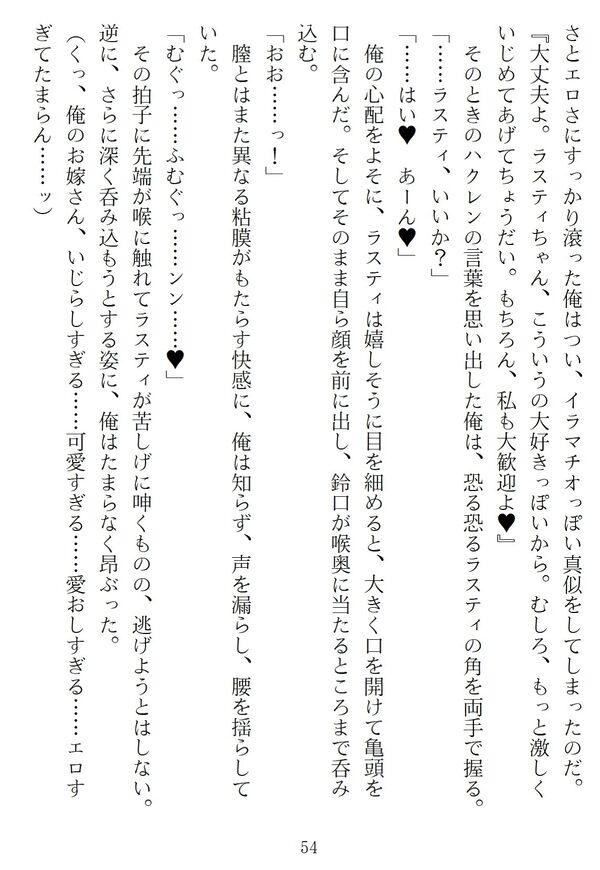 さとエロさにすっかり滾った俺はつい、イラマチオっぽい真似をしてしまったのだ。
『大丈夫よ。ラスティちゃん、こういうの大好きっぽいから。むしろ、もっと激しく
いじめてあげてちょうだい。もちろん、私も大歓迎よ♥』
　そのときのハクレンの言葉を思い出した俺は、恐る恐るラスティの角を両手で握る。
「……ラスティ、いいか？」
「……はい♥　あーん♥」
　俺の心配をよそに、ラスティは嬉しそうに目を細めると、大きく口を開けて亀頭を
口に含んだ。そしてそのまま自ら顔を前に出し、鈴口が喉奥に当たるところまで呑み
込む。
「おお……っ！」
　膣とはまた異なる粘膜がもたらす快感に、俺は知らず、声を漏らし、腰を揺らして
いた。
「むぐっ……ふむぐっ……ンン……♥」
　その拍子に先端が喉に触れてラスティが苦しげに呻くものの、逃げようとはしない。
逆に、さらに深く呑み込もうとする姿に、俺はたまらなく昂ぶった。
（くっ、俺のお嫁さん、いじらしすぎる……可愛すぎる……愛おしすぎる……エロす
ぎてたまらん……ッ）
54